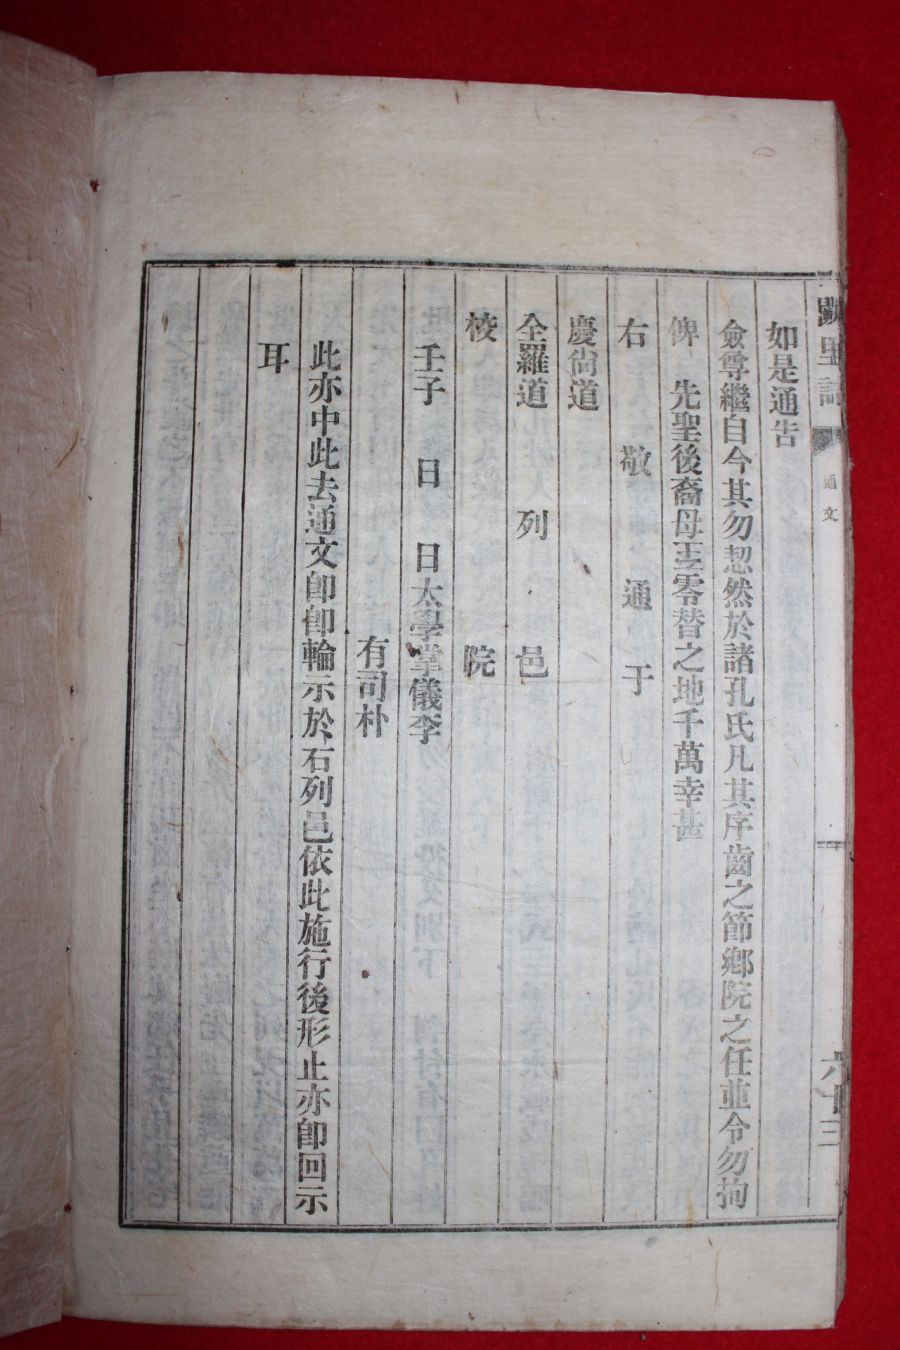 闕里誌
通文
六十三
如是通告
僉尊繼自今其勿恝然於諸孔氏凡其序齒之節鄕院之任並令勿拘
俾 先聖後裔毋至零替之地千萬幸甚
右 敬 通 于
慶尙道
全羅道 列 邑
校 院
壬子 日 日太學掌儀李
有司朴
此亦中此去通文卽卽輪示於右列邑依此施行後形止亦卽回示
耳